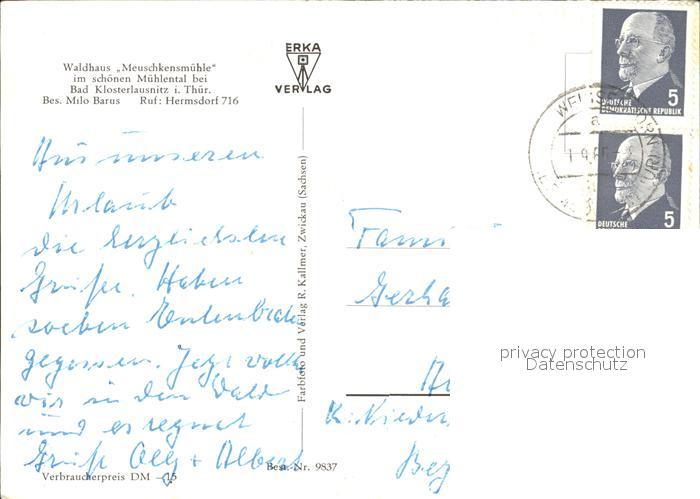 Waldhaus „Meuschkensmühle"
im schönen Mühlental bei
Bad Klosterlausnitz i. Thür.
Bes. Milo Barus Ruf: Hermsdorf 716
ERKA
VERLAG
DEUTSCHE
DEMOKRATISCHE REPUBLIK
5
DEUTSCHE
5
Aus unserem
Urlaub
die herzlichsten
Grüße. Haben
soeben Entenbraten
gegessen. Jetzt wollen
wir in den Wald
und es regnet
Grüße Olly + Albert
Verbraucherpreis DM –,15
Best. Nr. 9837
Farbfoto und Verlag R. Kallmer, Zwickau (Sachsen)
Fami
Gerha
K. Nieder
Bez
privacy protection
Datenschutz